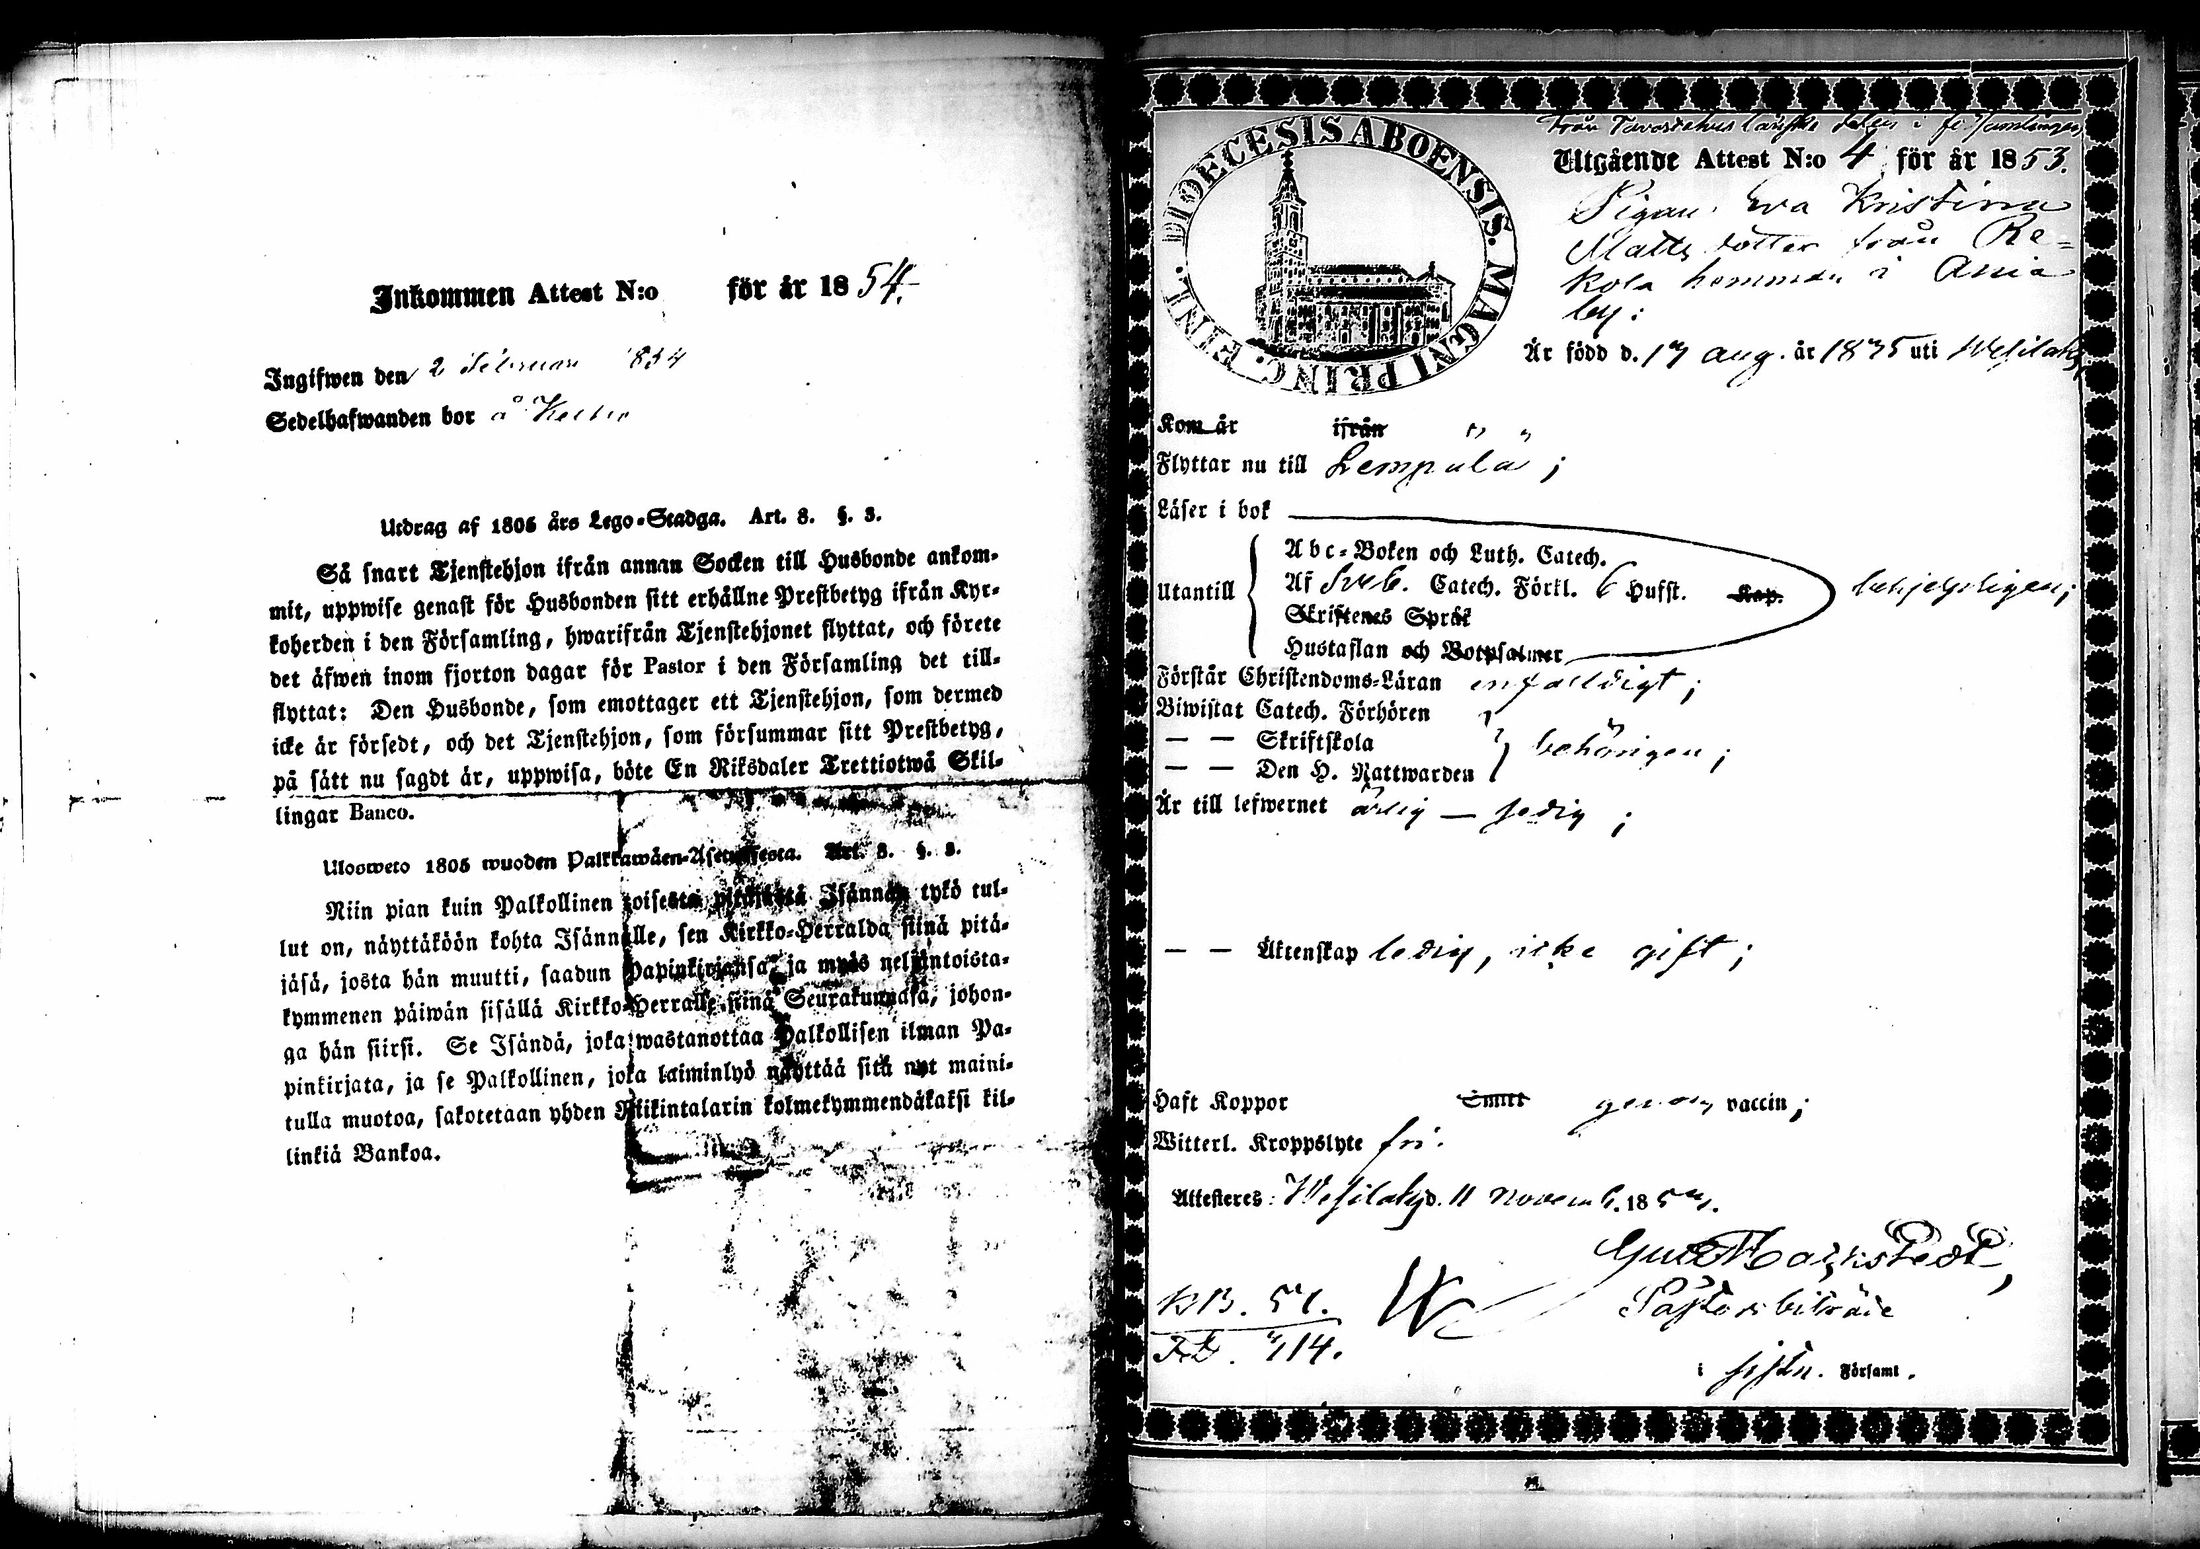 Inkommen Attest N:o för år 1854.
Ingifwen den 2 Februari 1854
Sedelhafwanden bor å
Utdrag af 1805 års Lego-Stadga. Art. 8. §. 3.
Så snart Tjenstehjon ifrån annan Socken till Husbonde ankom-
mit, uppwise genast för Husbonden sitt erhållne Prestbetyg ifrån Kyr-
koherden i den Församling, hwarifrån Tjenstehjonet flyttat, och förete
det äfwen inom fjorton dagar för Pastor i den Församling det till-
flyttat: Den Husbonde, som emottager ett Tjenstehjon, som dermed
icke är försedt, och det Tjenstehjon, som försummar sitt Prestbetyg,
på sätt nu sagdt är, uppwisa, böte En Riksdaler Trettiotwå Skil-
lingar Banco.
Ulosweto 1805 wuoden Palkkawäen-Asetuksesta. Art. 8. §. 3.
Niin pian kuin Palkollinen toisesta pitäjästä Isännän tykö tul-
lut on, näyttäköön kohta Isännälle, sen Kirkko-Herralda siinä pitä-
jäsä, josta hän muutti, saadun Papinkirjansa, ja myös neljäntoista-
kymmenen päiwän sisällä Kirkko-Herralle siinä Seurakunnasa, johon-
ga hän siirsi. Se Isändä, joka wastanottaa Palkollisen ilman Pa-
pinkirjata, ja se Palkollinen, joka laiminlyö näyttää sitä nyt maini-
tulla muotoa, sakotetaan yhden Riikintalarin kolmekymmendäkaksi kil-
linkiä Bankoa.
DIOECESIS ABOENSIS. MAGNI PRINC. FINL.
från Tavastehus länske delen i
Utgående Attest N:o 4 för år 1853.
Pigan Eva Kristina
Matts dotter från Re=
kola hemman i Ania
by:
Är född d. 17 aug. år 1835 uti Wesilaks,
Kom år ifrån " "
Flyttar nu till Lempälä;
Läser i bok
Abc-Boken och Luth. Catech.
Utantill Af Sveb. Catech. Förkl. 6 Hufst. Kap.
Skriftenes Språk
Hustaflan och Botpsalmer
Förstår Christendoms-Läran enfaldigt;
Biwistat Catech. Förhören
— — Skriftskola behörigen;
— — Den H. Nattwarden
Är till lefwernet ärlig — sedig;
— — Äktenskap ledig, icke gift;
Haft Koppor Smitt genom vaccin;
Witterl. Kroppslyte fri.
Attesteres: Wesilaks d. 11 Novemb. 1853.
Pastors biträde
KB. 51.
i Församl.